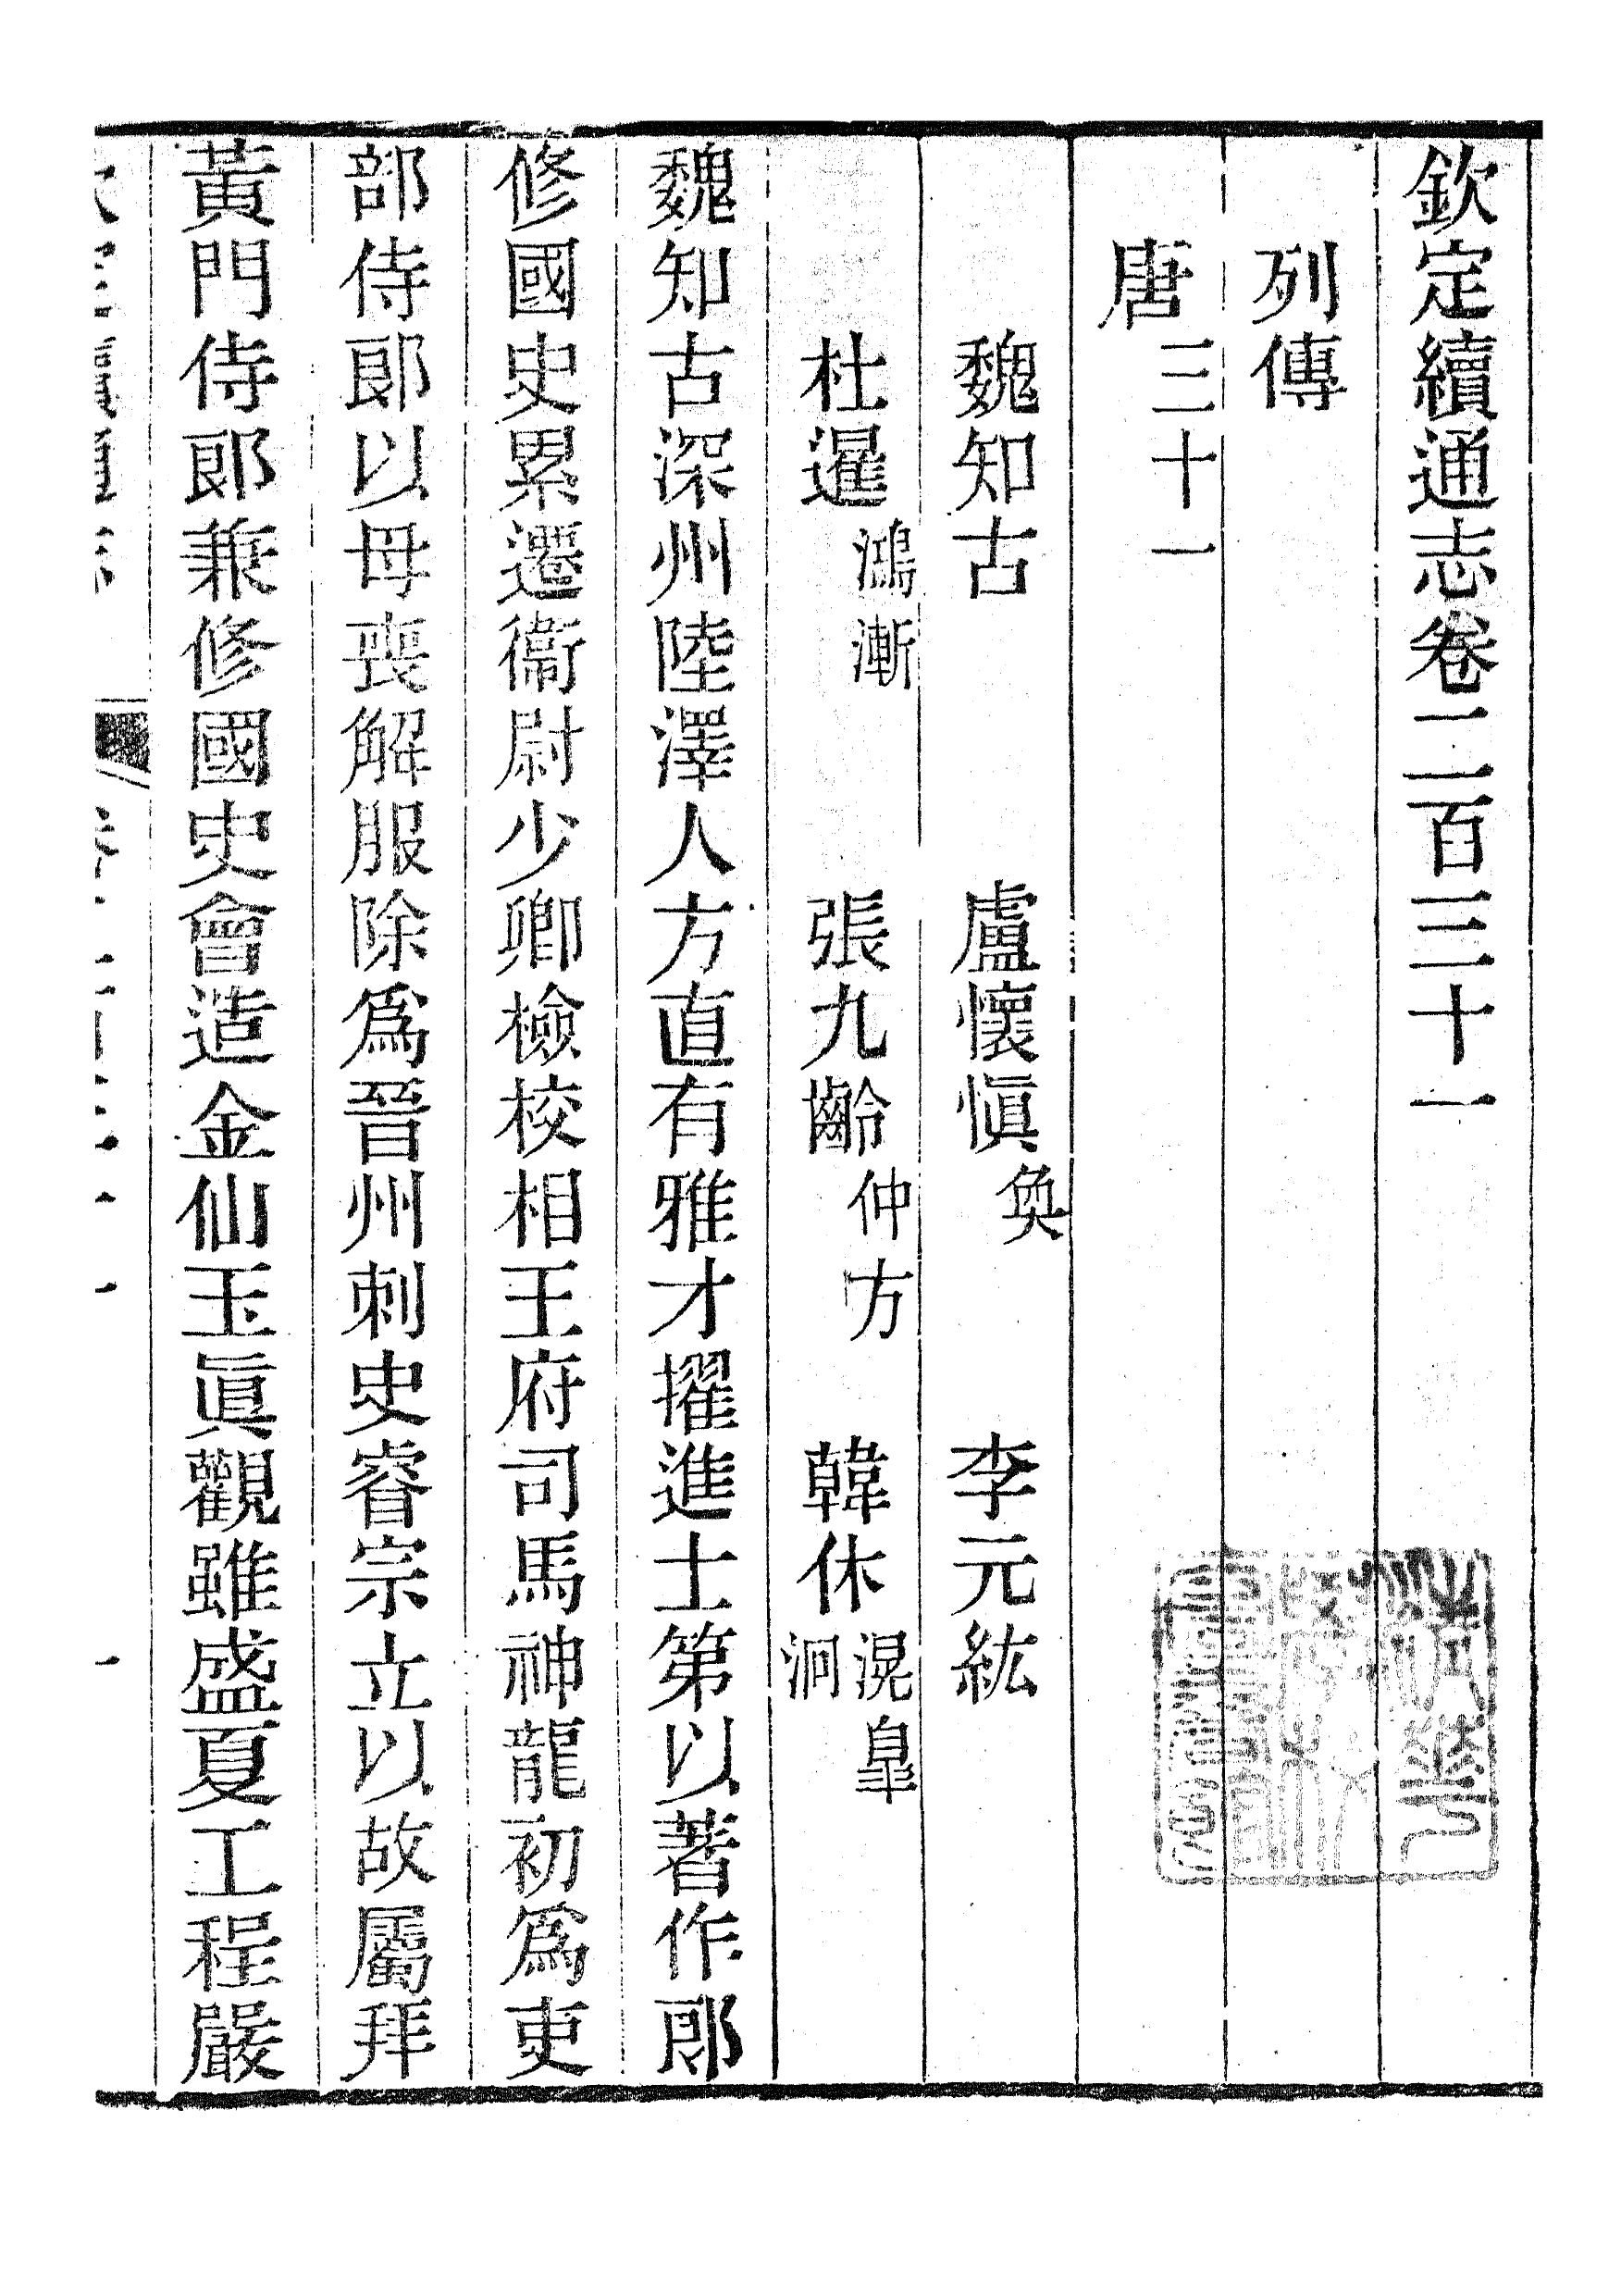 欽定續通志卷二百三十一
列傳
唐三十一
魏知古 盧懷愼奐 李元紘
杜暹鴻漸 張九齡仲方 韓休滉皐洄
魏知古深州陸澤人方直有雅才擢進士第以著作郎
修國史累遷衞尉少卿檢校相王府司馬神龍初爲吏
部侍郎以母喪解服除爲晉州刺史睿宗立以故屬拜
黃門侍郎兼修國史會造金仙玉眞觀雖盛夏工程嚴